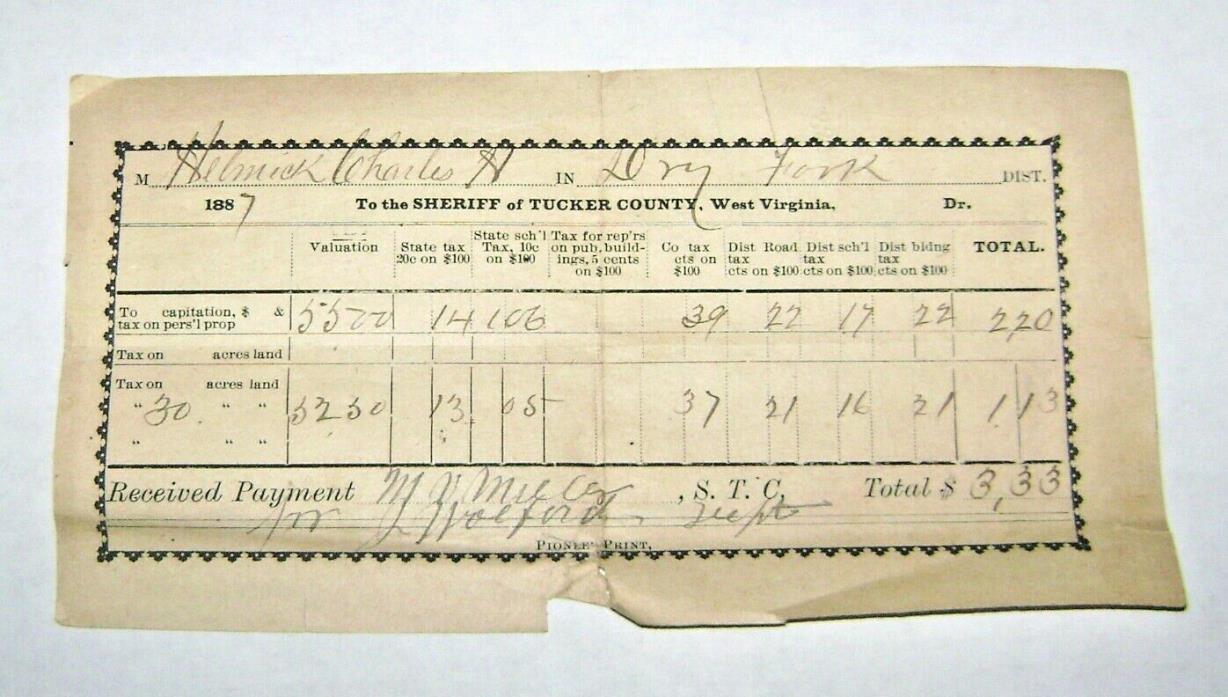 M Helmick Charles H IN Dry Fork DIST.
1887 To the SHERIFF of TUCKER COUNTY, West Virginia, Dr.
Valuation State tax 20c on $100 State sch'l Tax, 10c on $100 Tax for rep'rs on pub. build-ings, 5 cents on $100 Co tax cts on $100 Dist Road tax cts on $100 Dist sch'l tax cts on $100 Dist bldng tax cts on $100 TOTAL.
To capitation, $ & tax on pers'l prop 5500 14 106 39 22 17 22 220
Tax on acres land
Tax on acres land
" 30 " " 5250 13 05 37 21 16 21 1 13
" " "
Received Payment M V Miller, S. T. C, Total $ 3,33
for J Wolford Dept
PIONEER PRINT,